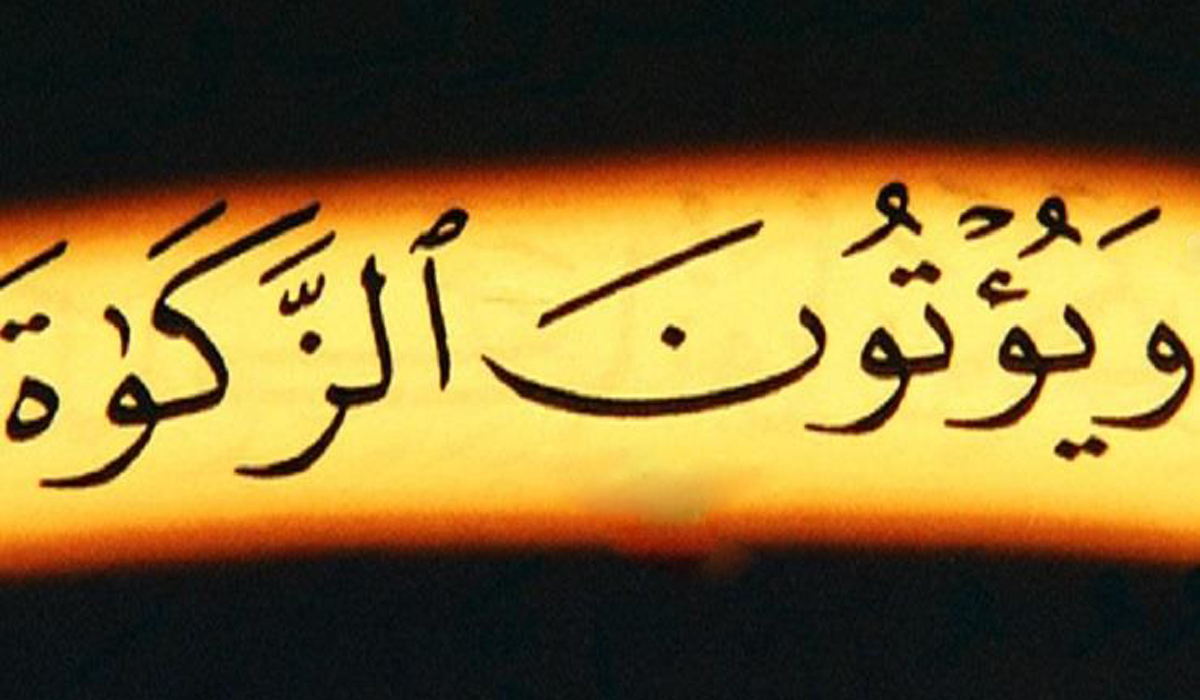 وَيُؤْتُونَ ٱلزَّكَوٰةَ